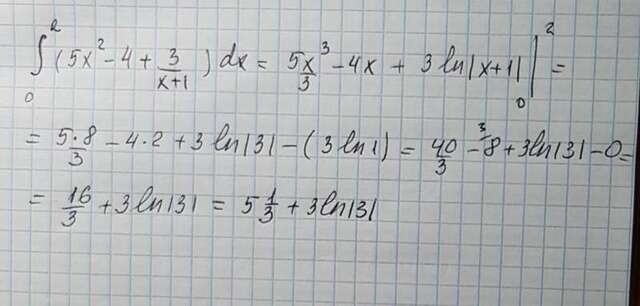 ∫₀² (5x² - 4 + 3/(x+1)) dx = 5x³/3 - 4x + 3 ln|x+1| |₀² =
= 5·8/3 - 4·2 + 3 ln|3| - (3 ln 1) = 40/3 - ³8 + 3 ln|3| - 0 =
= 16/3 + 3 ln|3| = 5 1/3 + 3 ln|3|